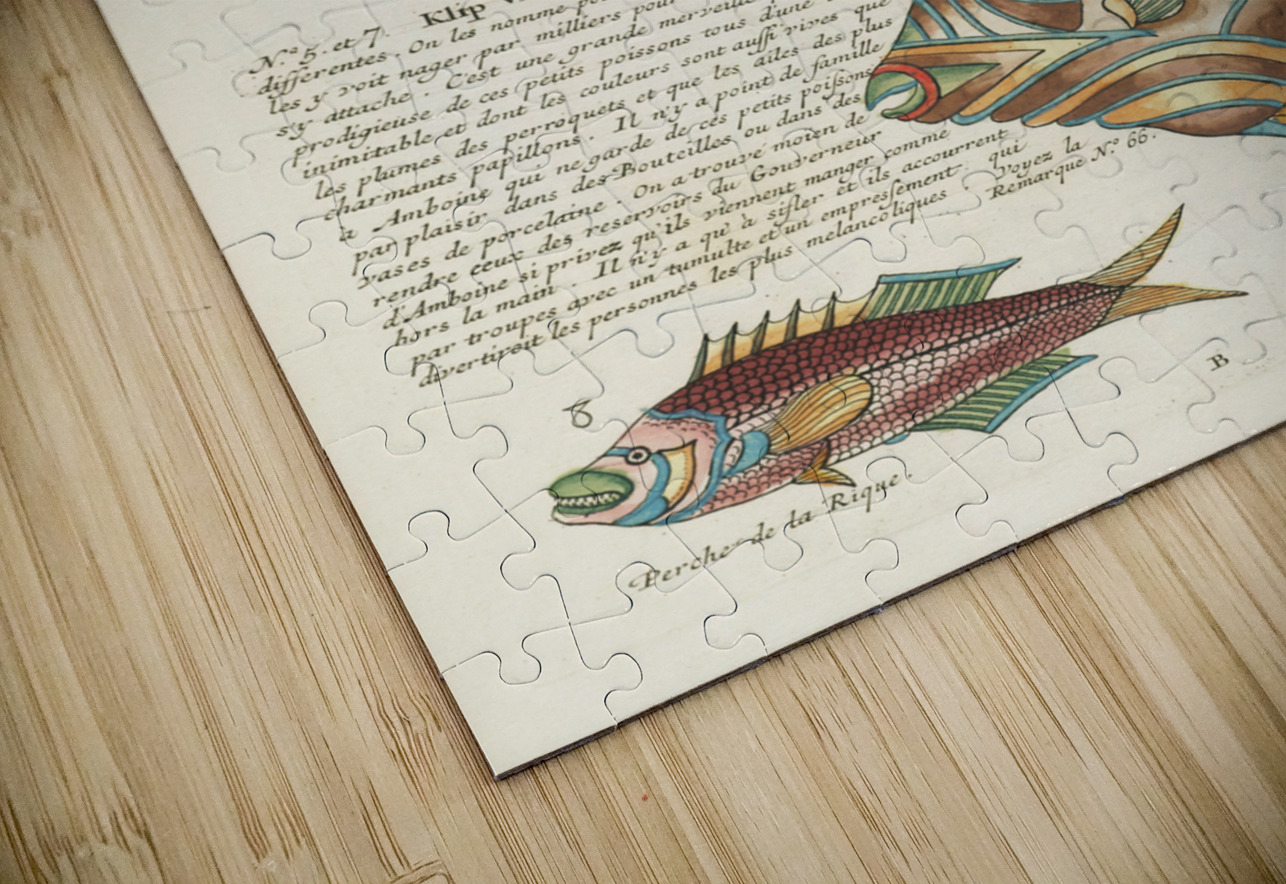 Klip
N.º 5. et 7.
differentes. On les nomme
les y voit nager par milliers pour
s'y attache. C'est une grande merveille
prodigieuse de ces petits poissons tous d'une
inimitable et dont les couleurs sont aussi rives que
les plumes des perroquets et que les ailes des plus
charmants papillons. Il n'y a point de famille
à Amboine qui ne garde de ces petits poissons
par plaisir dans des Bouteilles ou dans des
vases de porcelaine On a trouvé moien de
rendre ceux des reservoirs du Gouverneur
d'Amboine si privez qu'ils viennent manger comme
hors la main. Il n'y a qu'à sifler et ils accourrent
par troupes avec un tumulte et un empressement qui
divertiroit les personnes les plus melancoliques Voyez la
Remarque N.º 66.
8
B
Perche de la Rique.